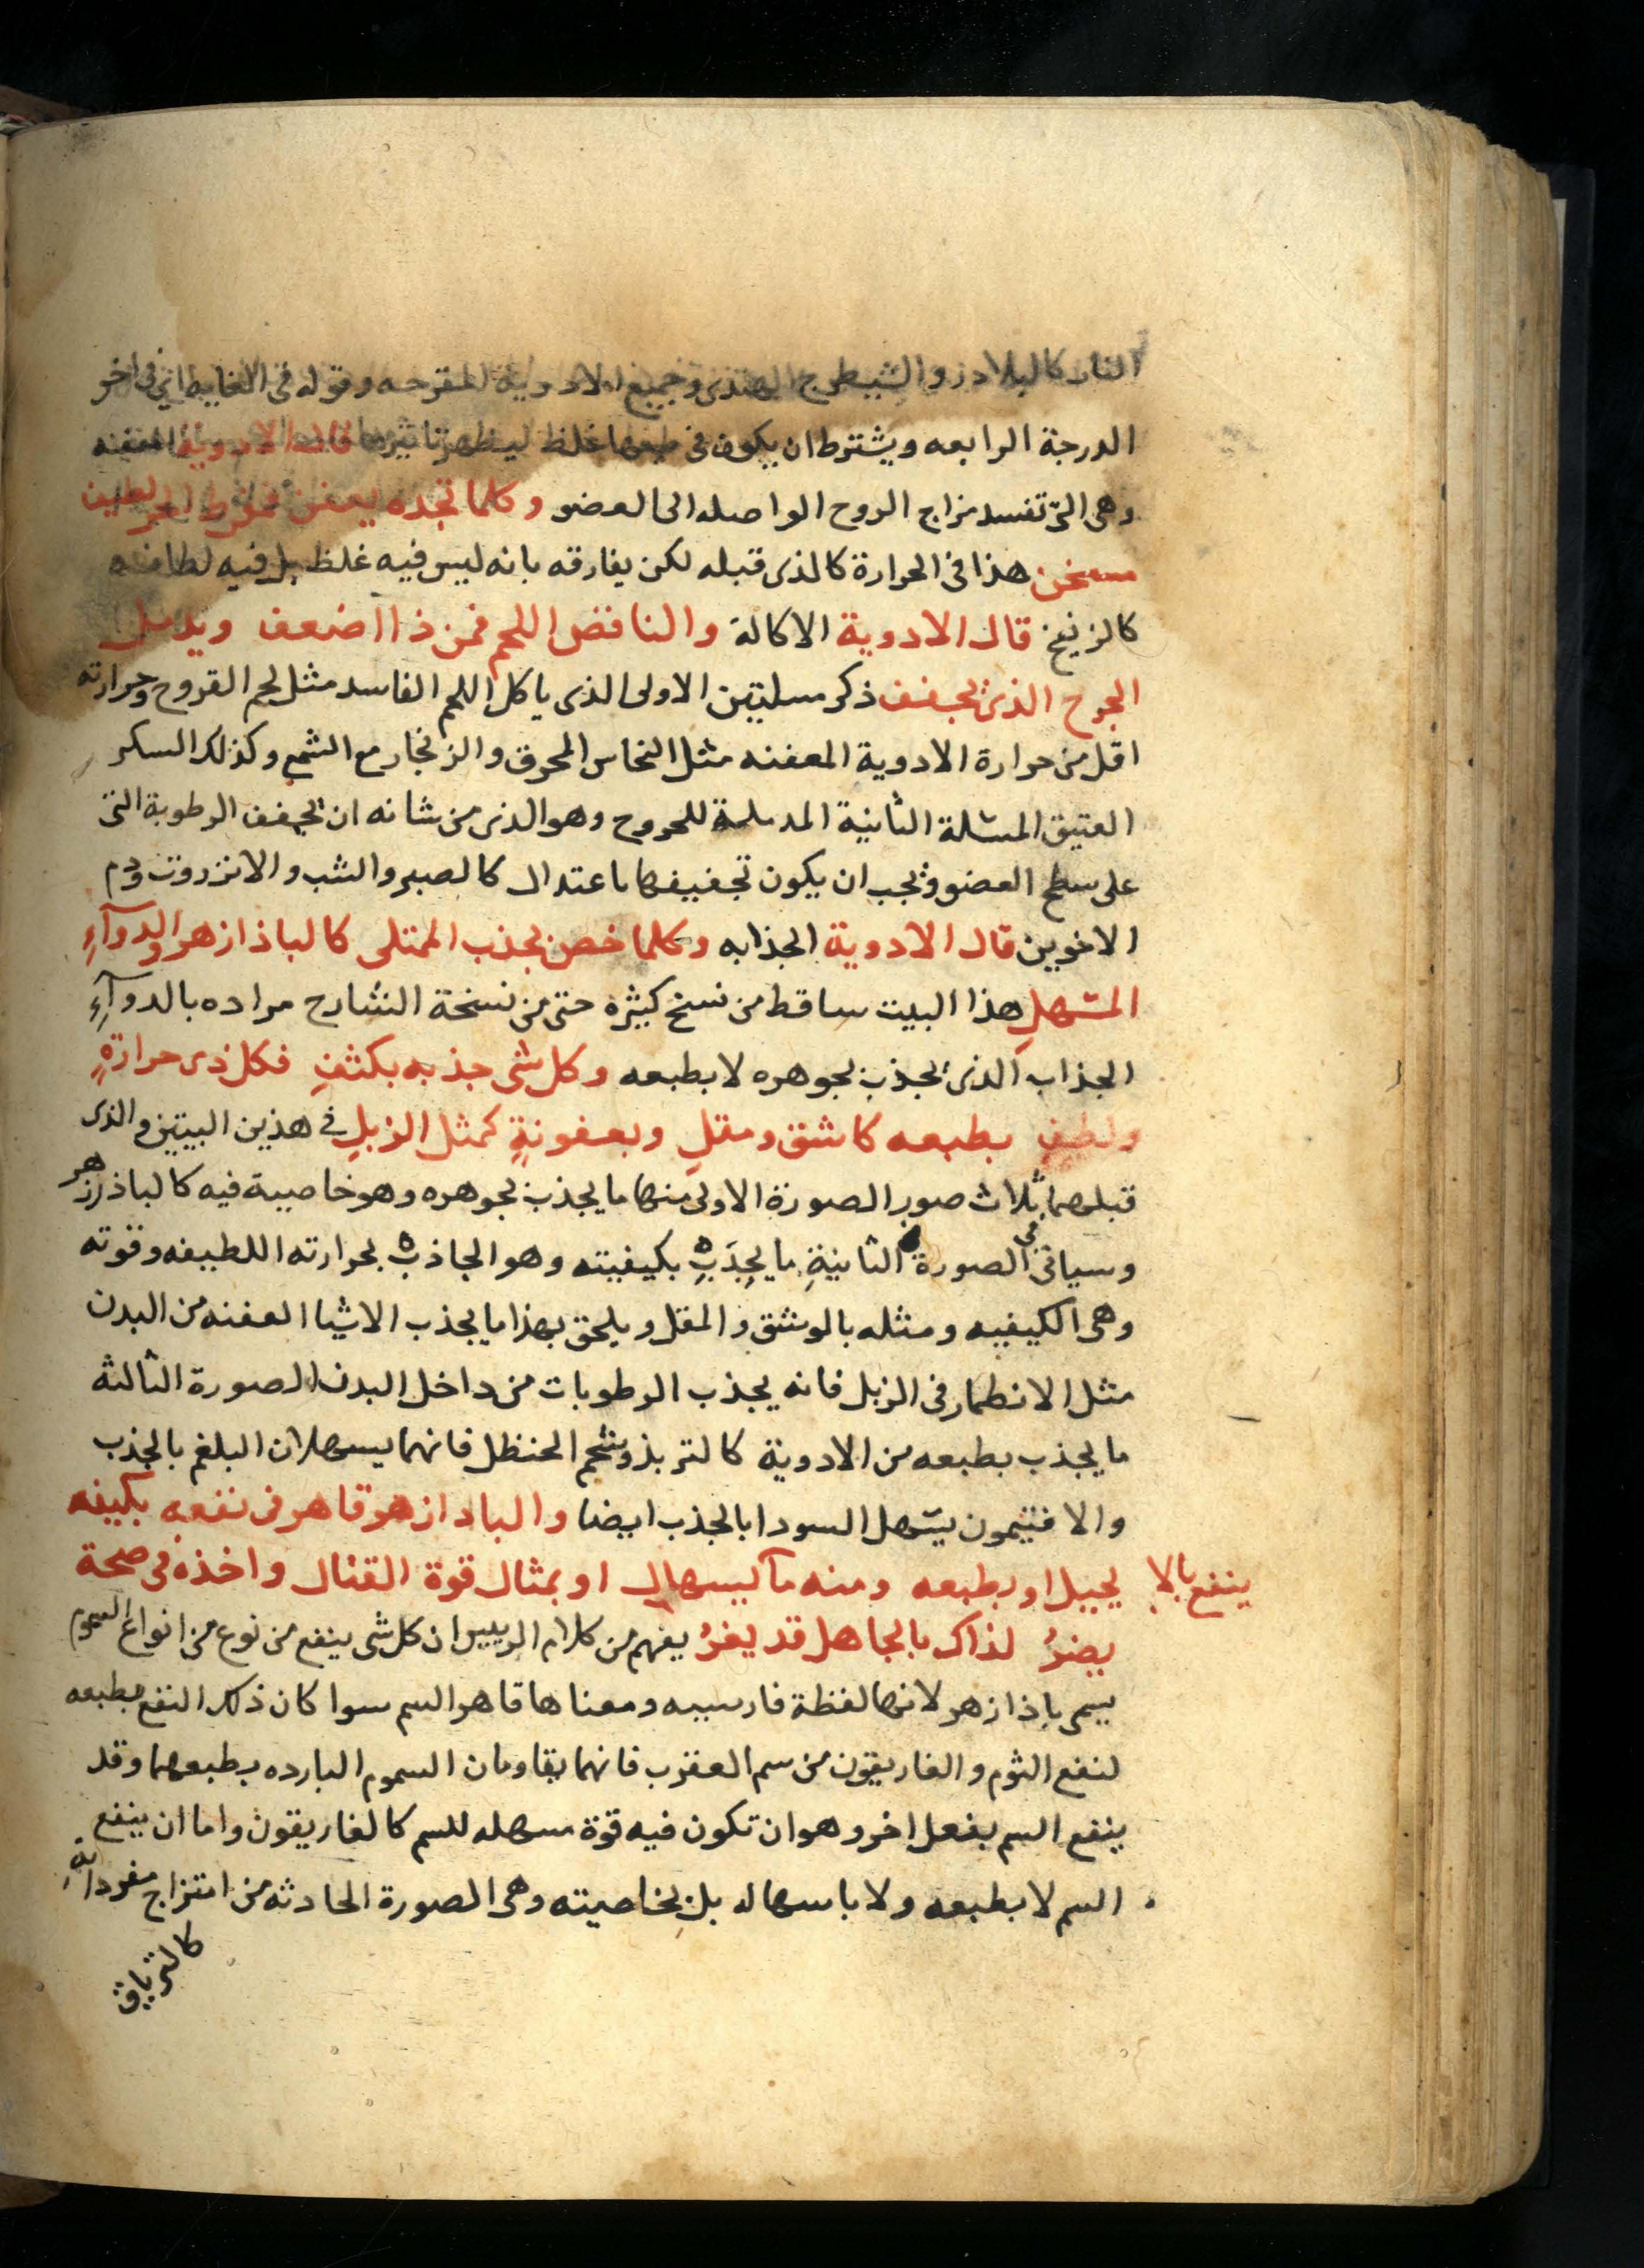 النار كالبلادر والشيطرج الهندى وجميع الادوية المقرحه وقوله فى الغايه اى فى اخر
الدرجة الرابعه ويشترط ان يكون فى طبعها غلظ ليظهر تاثيرها قال الادوية المعفنه
وهى التى تفسد مزاج الروح الواصله الى العضو وكلما تجده يعفن مفرط الحر لطيف
مسخن هذا فى الحرارة كالذى قبله لكن يفارقه بانه ليس فيه غلظ بل فيه لطافه
كالزرنيخ قال الادوية الاكالة والناقض اللحم فمن ذا اضعف ويدمل
الجرح الذى يجفف ذكر مسلتين الاولى الذى ياكل اللحم الفاسد مثل لحم القروح وحرارته
اقل من حرارة الادوية المعفنه مثل النحاس المحرق والزنجار مع الشمع وكذلك السكر
العتيق المسئلة الثانية المدملة للجروح وهو الذى من شانه ان يجفف الرطوبة التى
على سطح العضو ويجب ان يكون تجفيفها باعتدال كالصبر والشب والانزروت ودم
الاخوين قال الادوية الجذابه وكلما خص بجذب الممتلى كالباذازهر والدوآءِ
المسهلِ هذا البيت ساقط من نسخ كثيره حتى من نسخة الشارح مراده بالدوآءِ
الجذاب الذى يجذب بجوهره لا بطبعه وكل شى جذبه بكثفِ فكل ذى حرارةٍ
ولطفِ بطبعه كاشق ومقلِ وبعفونةٍ كمثل الزبلِ فى هذين البيتين والذى
قبلهما ثلاث صور الصورة الاولى منها ما يجذب بجوهره وهو خاصية فيه كالباذزهر
وسياتى فى الصورة الثانيةِ ما يجذبِ بكيفيته وهو الجاذب بحرارته اللطيفه وقوته
وهى الكيفيه ومثله بالوشق والمقل ويلحق بهذا ما يجذب الاشيا العفنه من البدن
مثل الانطمار فى الزبل فانه يجذب الرطوبات من داخل البدن الصورة الثالثة
ما يجذب بطبعه من الادوية كالتربذ وشحم الحنظل فانهما يسهلان البلغم بالجذب
والافتيمون يسهل السودا بالجذب ايضا والبادازهر قاهر فى نفعه بكيفه
ينفع بالا يجيل او بطبعه ومنه ما يسهال او بمثال قوة القتال واخذه فى صحة
يضرُ لذاك بالجاهل قد يغرُ يفهم من كلام الرييس ان كل شى ينفع من نوع من انواع السموم
يسمى باذازهر لانها لفظة فارسيه ومعناها قاهر السم سوا كان ذلك النفع بطبعه
لنفع الثوم والغاريقون من سم العقرب فانهما يقاومان السموم البارده بطبعهما وقد
ينفع السم بفعل اخر وهو ان تكون فيه قوة مسهله للسم كالغاريقون واما ان ينفع
السم لا بطبعه ولا باسهاله بل بخاصيته وهى الصورة الحادثه من امتزاج مفرداتهِ
كالترياق